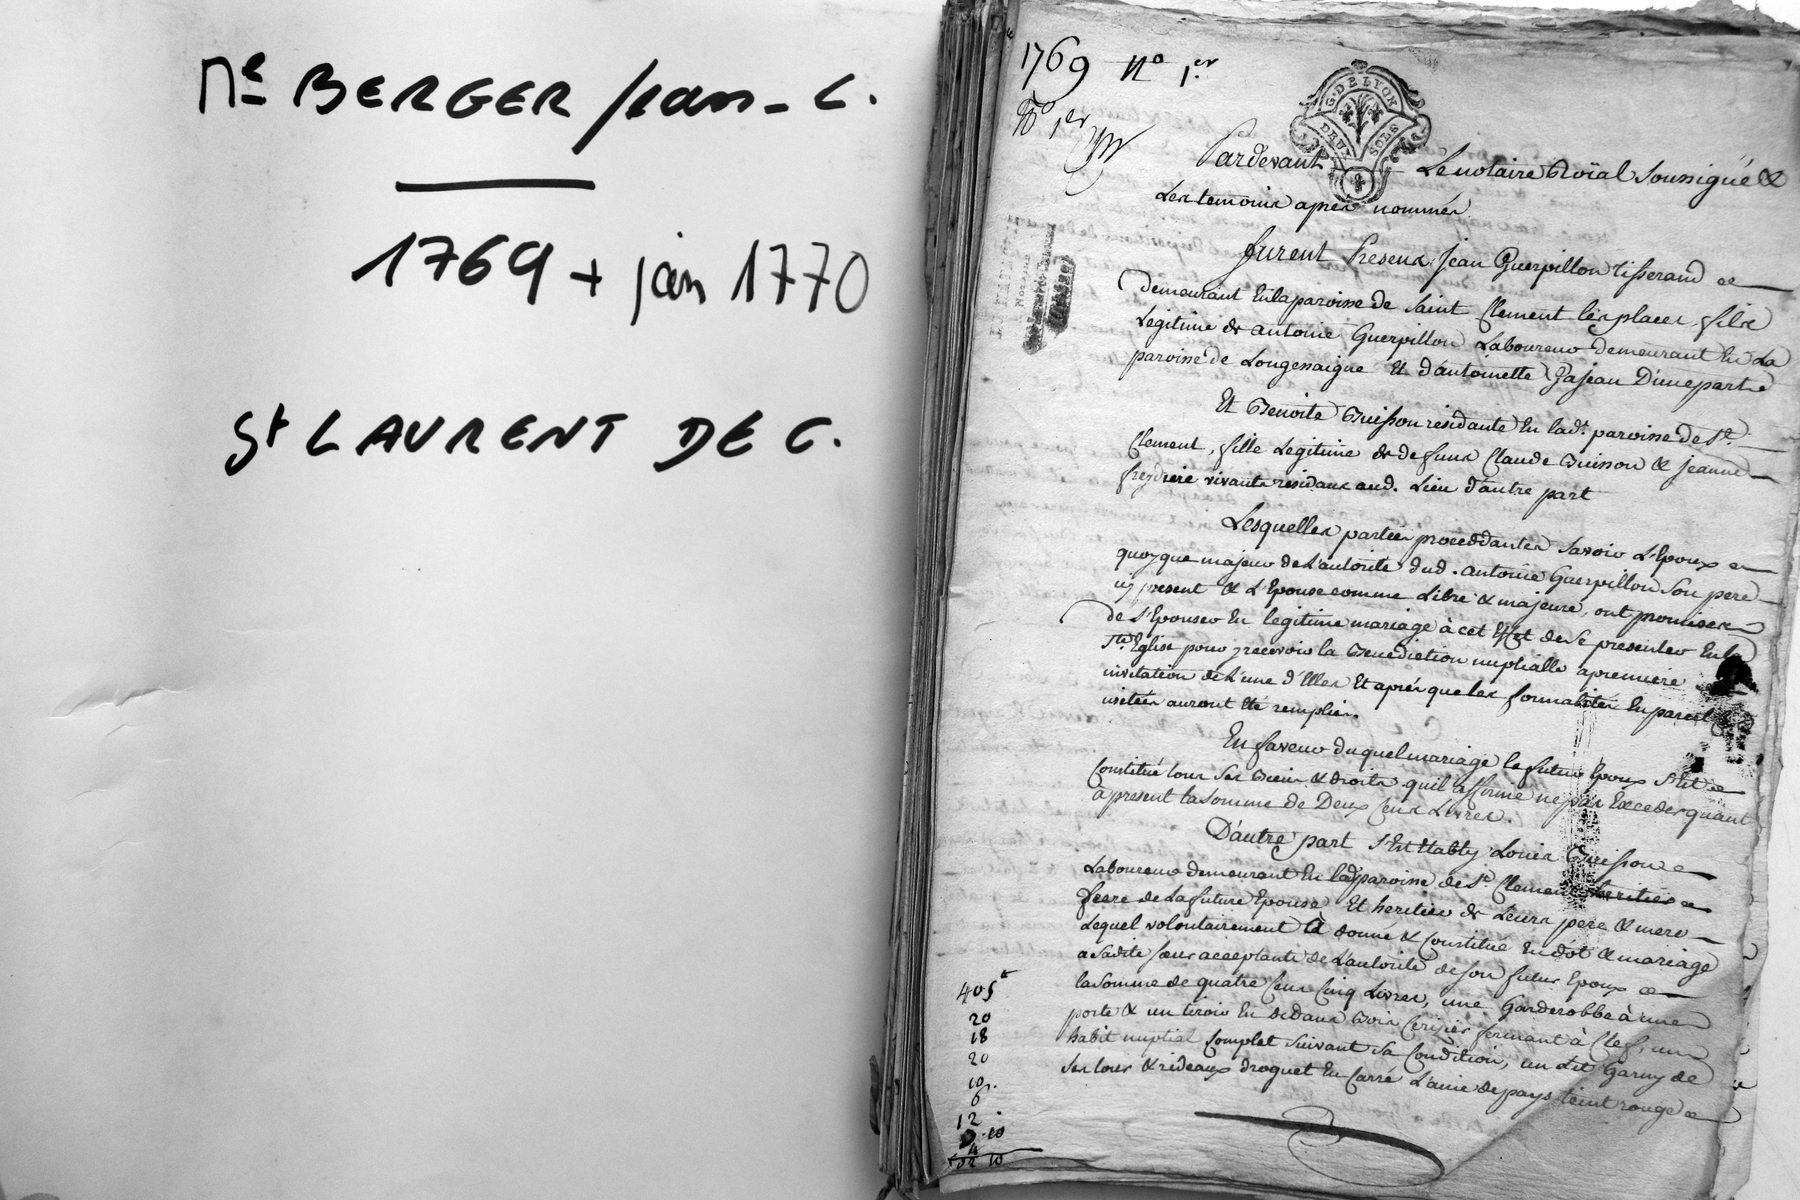 Me BERGER Jean-C.
1769 + jan 1770
St LAURENT DE C.
1769 No 1.er
No 1er
G. DE LYON
DEUX SOLS
Pardevant Le notaire Roïal Soussigné &
Les temoins apres nommés
furent Presens Jean Guerpillon tisserand
demeurant En la paroisse de Saint Clement les places, fils
Legitime de antoine Guerpillon Laboureur demeurant En La
paroisse de Longessaigne Et d'antoinette Jajeau D'une part
Et Benoite Buisson residante En lad.t paroisse de St.
Clement, fille Legitime de defunt Claude Buisson & jeanne
freydiere vivants residans aud. Lieu d'autre part
Lesquelles parties proceddantes savoir L'Epoux
quoyque majeur de L'autorité dud. antoine Guerpillon Son pere
icy present & L'Epouse comme Libre & majeure, ont promis
de S'Epouser En legitime mariage à cet Effet de Se presenter En la
Ste Eglise pour y recevoir la Benediction nuptialle a premiere
invitation de L'une d'Elles Et après que les formalités En pareil
usitées auront Eté remplies.
En faveur du quel mariage le futur Epoux S'Est
Constitué tous Ses Biens & droits qu'il affirme ne pas Exceder quant
a present la Somme de Deux Cens Livres.
D'autre part S'Est Etably Louis Buisson
Laboureur demeurant En lad paroisse de St. Clement heritier
frere de La future Epouse Et heritier de Leurs pere & mere
Lequel volontairement à donné & Constitué En dôt & mariage
a Sadite Sœur acceptante de L'autorité de Son futur Epoux
la Somme de quatre Cens Cinq Livres, une Garderobbe à une
porte & un tiroir En dedans Bois Cerisier fermant à Clef, un
habit nuptial Complet Suivant Sa Condition, un Lit Garny de
Ses tours & rideaux droguet En Carré Laine de pays teint rouge
405
20
18
20
10
6
12
10
4
10